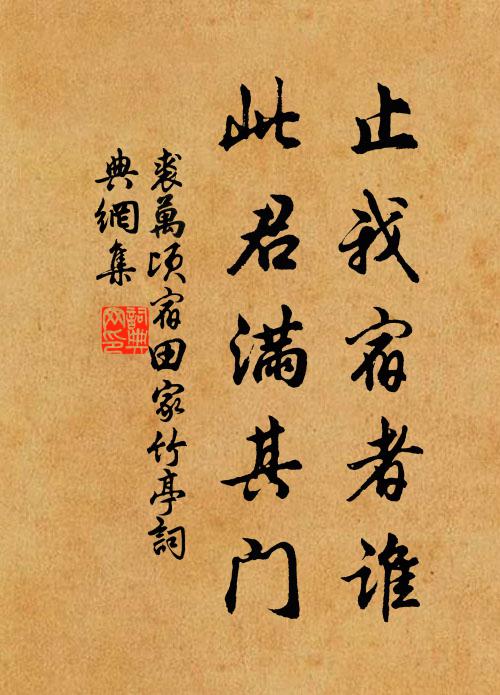 止我宿者谁
此君满其门
裘萬頃宿田家竹亭詞
典網集
詞典网印